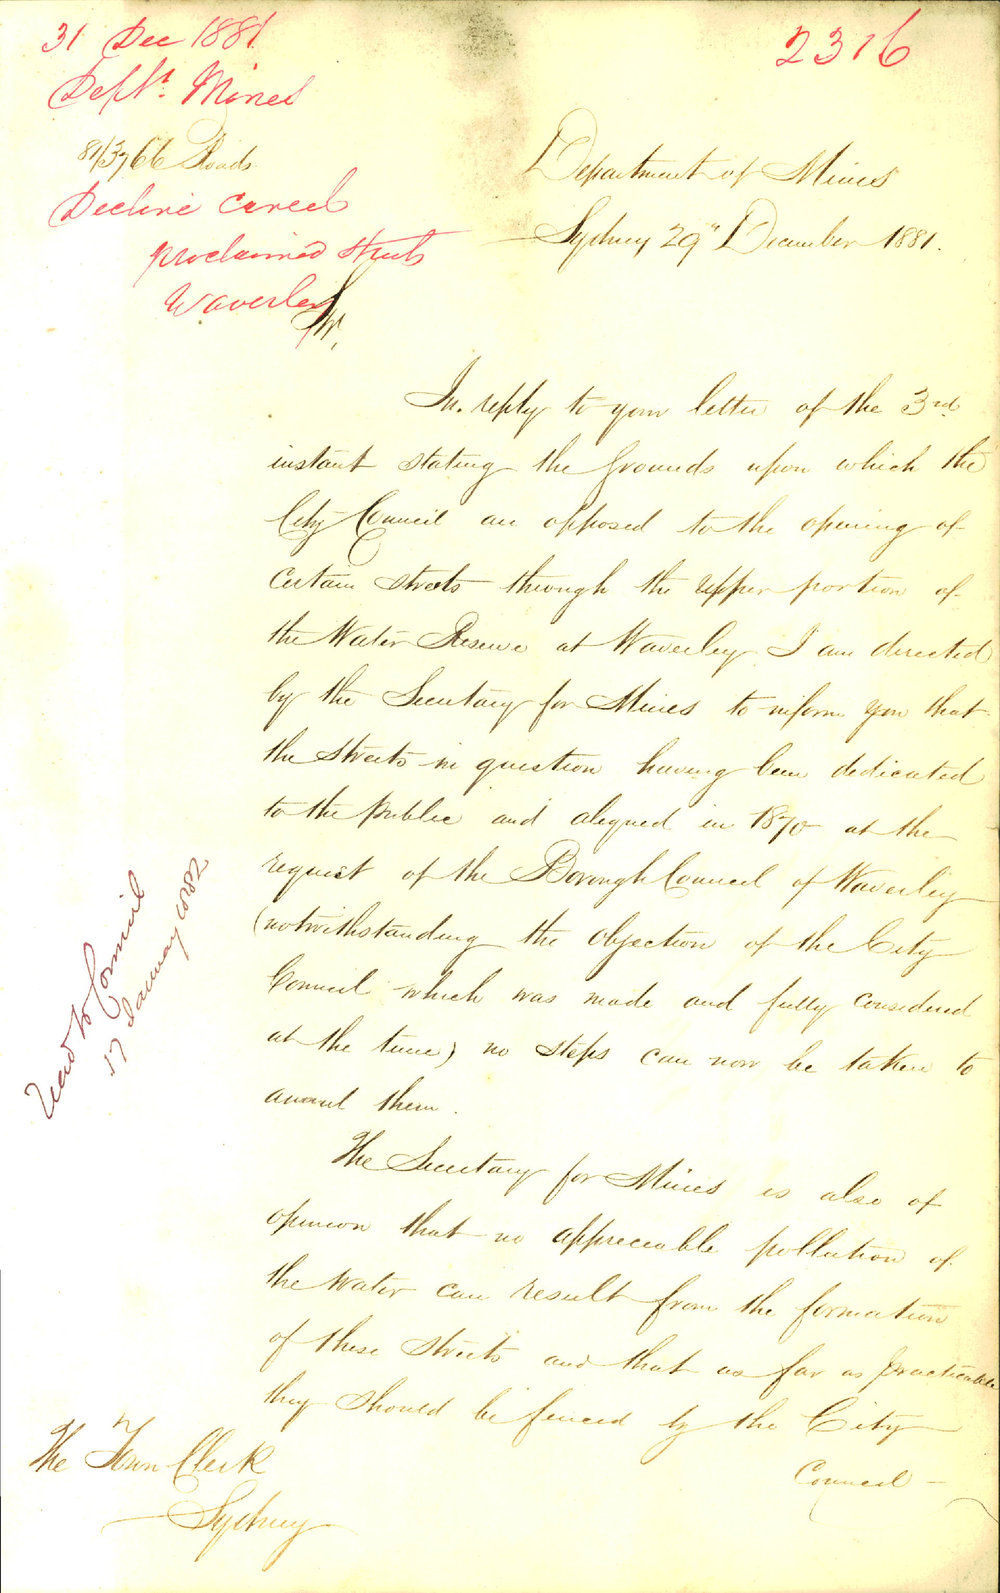 31 Dec 1881
2316
Dept. Mines
81/3766 Roads
Decline cancel
proclaimed streets
Waverley
Department of Mines
Sydney 29th December 1881.
Sir,
In reply to your letter of the 3rd
instant stating the grounds upon which the
City Council are opposed to the opening of
certain streets through the upper portion of
the Water Reserve at Waverley I am directed
by the Secretary for Mines to inform you that
the streets in question having been dedicated
to the public and aligned in 1870 at the
request of the Borough Council of Waverley
(notwithstanding the objection of the City
Council which was made and fully considered
at the time) no steps can now be taken to
annul them.
The Secretary for Mines is also of
opinion that no appreciable pollution of
the Water can result from the formation
of these streets and that as far as practicable
they should be fenced by the City
Council
The Town Clerk
Sydney
Read to Council
17 January 1882